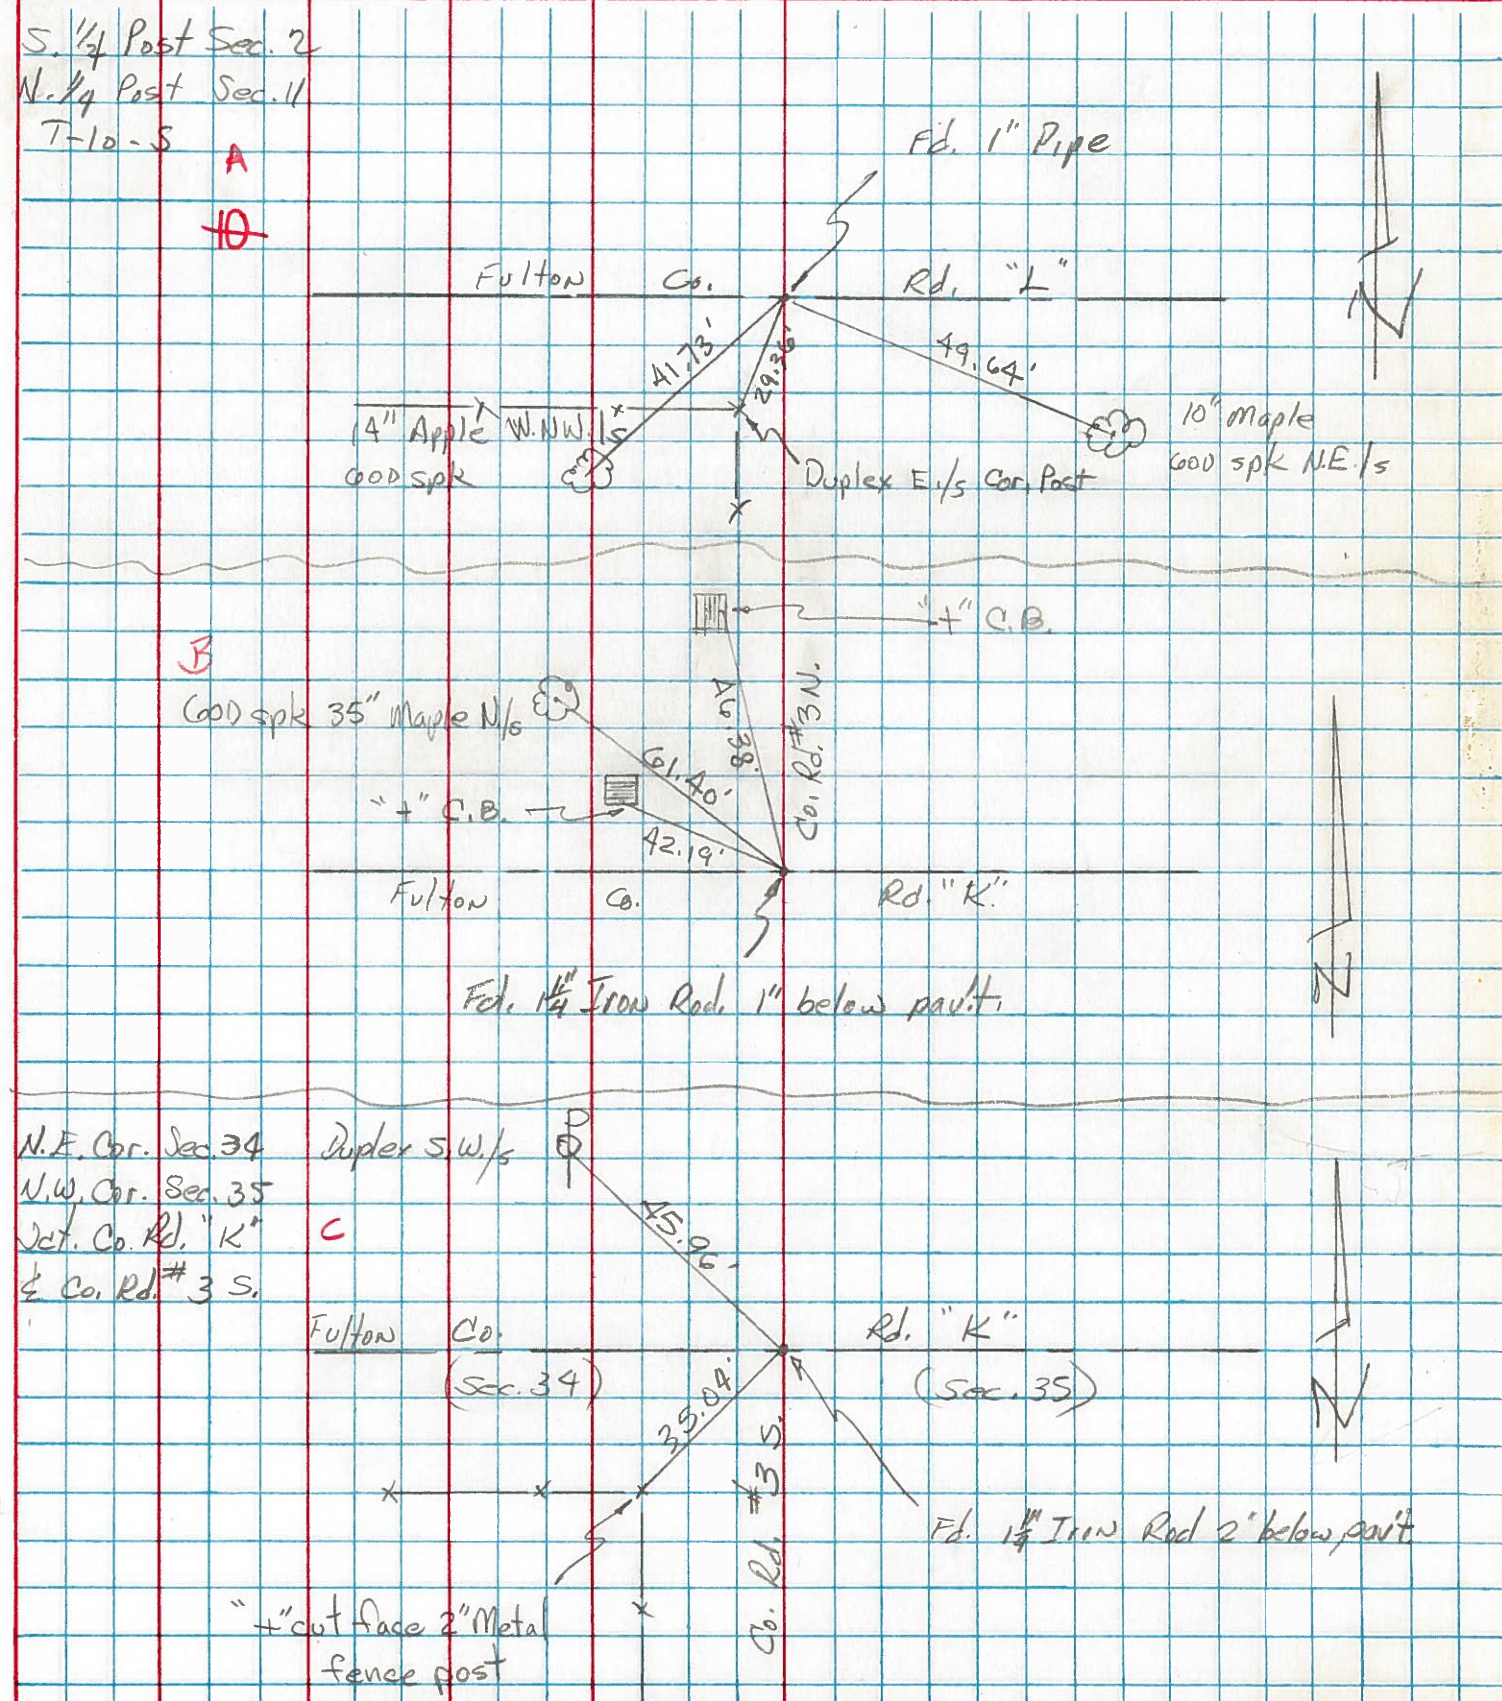 S. 1/4 Post Sec. 2
N. 1/4 Post Sec. 11
T-10-S
A
10
Fd. 1" Pipe
Fulton Co. Rd. "L"
41.73'
29.36'
49.64'
14" Apple W.NW./s
60D spk
10" Maple
60D spk N.E./s
Duplex E./s Cor. Post
N
"+" C.B.
B
60D spk 35" Maple N/s
46.38'
Co. Rd. #3 N.
61.40'
"+" C.B.
42.19'
Fulton Co. Rd. "K"
N
Fd. 1 1/4" Iron Rod. 1" below pav't.
N.E. Cor. Sec. 34
N.W. Cor. Sec. 35
Jct. Co. Rd. "K"
& Co. Rd. #3 S.
C
Duplex S.W./s
P
45.96'
Fulton Co. Rd. "K"
(Sec. 34) (Sec. 35)
35.04'
Co. Rd. #3 S.
N
Fd. 1 1/4" Iron Rod 2" below pav't
"+" cut face 2" Metal
fence post